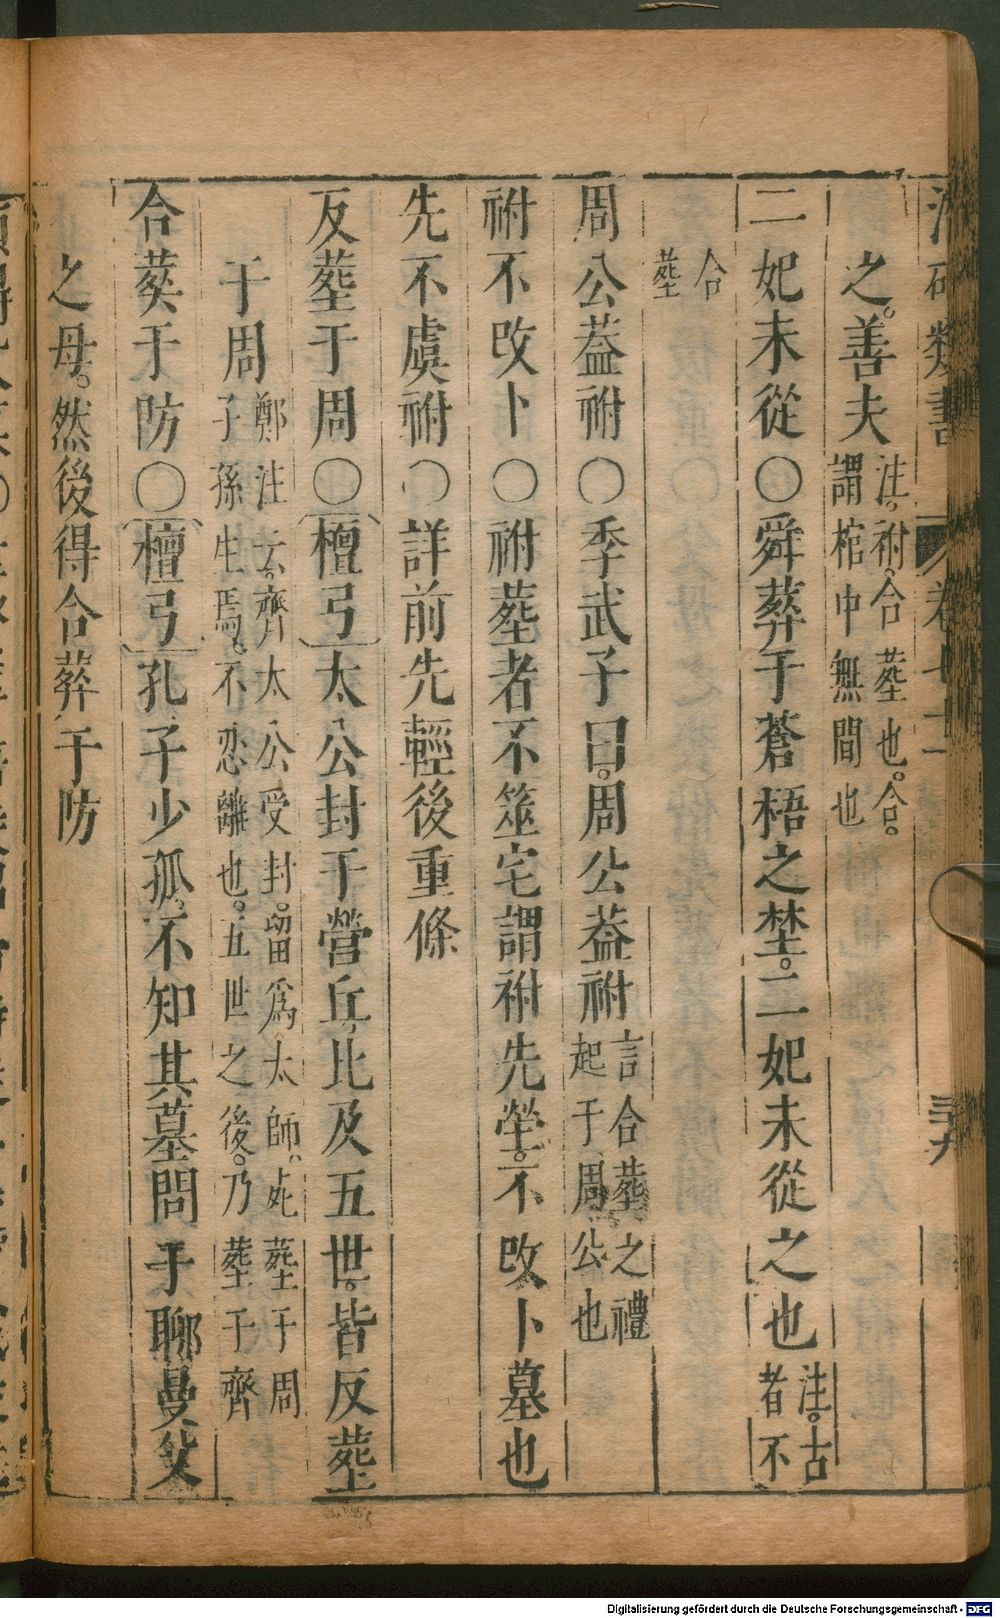 類書 卷七十一
之。善夫 注。祔。合塟也。合。謂棺中無間也
二妃未從〇舜葬于蒼梧之埜。二妃未從之也 注。古者不
合塟
周公葢祔〇季武子曰。周公葢祔 言合葬之禮起于周公也
祔不改卜〇祔塟者不筮宅謂祔先塋。不改卜墓也
先不虞祔〇詳前先輕後重條
反塟于周〇檀弓太公封于營丘。比及五世。皆反塟
于周 鄭注云。齊太公受封。留爲太師。死塟于周子孫生焉。不忍離也。五世之後。乃塟于齊
合葬于防〇檀弓孔子少孤。不知其墓問于郰曼父
之母。然後得合葬于防
Digitalisierung gefördert durch die Deutsche Forschungsgemeinschaft - DFG